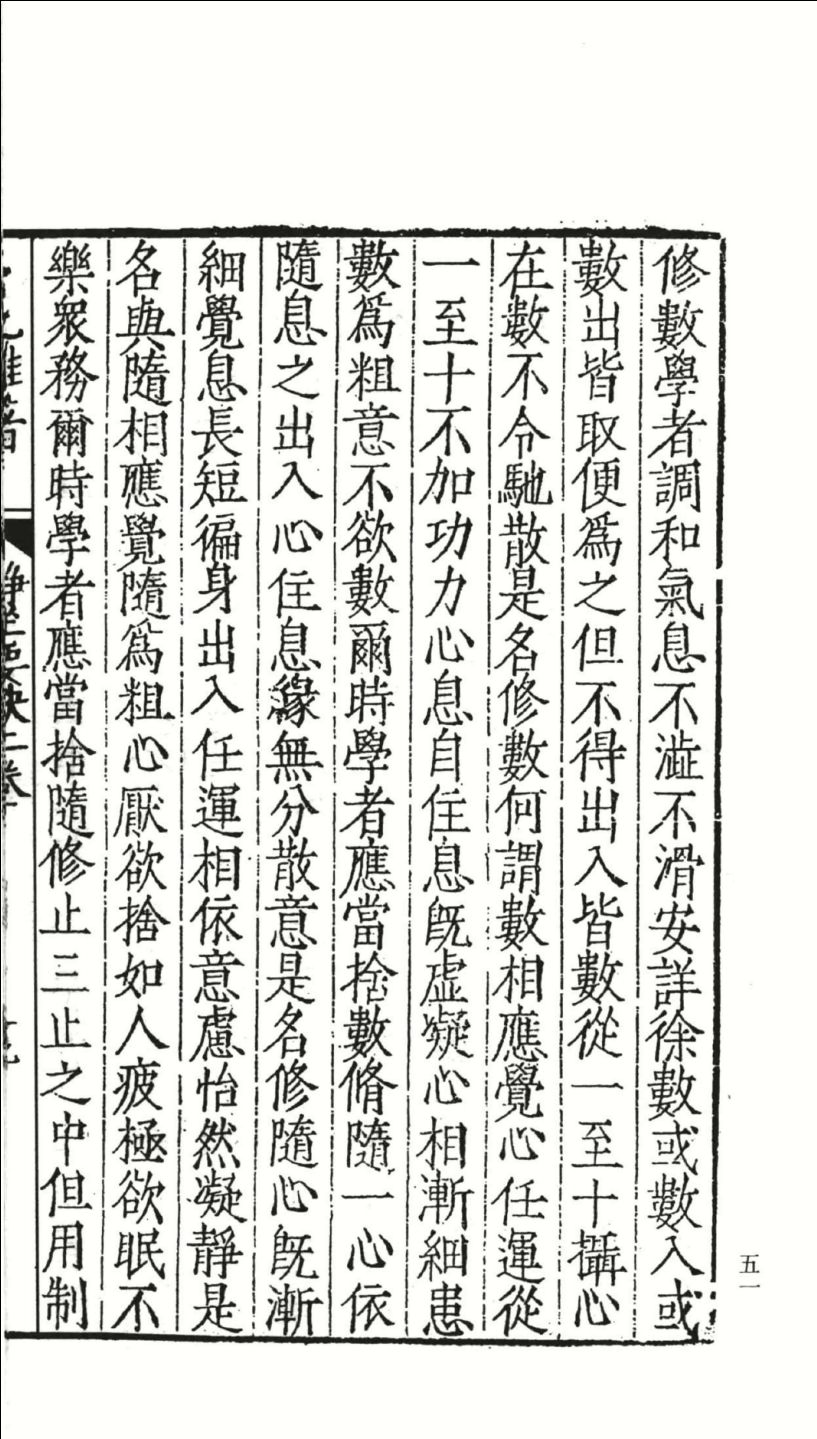 修數學者調和氣息不澁不滑安詳徐數或數入或
數出皆取便爲之但不得出入皆數從一至十攝心
在數不令馳散是名修數何謂數相應覺心任運從
一至十不加功力心息自住息旣虛凝心相漸細患
數爲粗意不欲數爾時學者應當捨數脩隨一心依
隨息之出入心住息緣無分散意是名修隨心旣漸
細覺息長短徧身出入任運相依意慮怡然凝靜是
名與隨相應覺隨爲粗心厭欲捨如人疲極欲眠不
樂衆務爾時學者應當捨隨修止三止之中但用制
五一